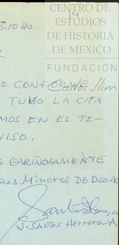 CENTRO DE
ESTUDIOS
DE HISTORIA
DE MÉXICO
FUNDACIÓN
Slim
TUBO LA CITA
MOS EN EL TE-
VISO.
CARIÑOSAMENTE
MINEROS DE DGO
J. SANTOS HERRERA A.